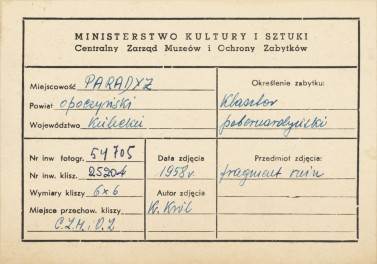 MINISTERSTWO KULTURY I SZTUKI
Centralny Zarząd Muzeów i Ochrony Zabytków
Miejscowość PARADYZ
Powiat opoczyński
Województwo kielecki
Określenie zabytku:
Klasztor
pobernardyński
Nr inw fotogr. 54705
Nr inw. kliszy. 25204
Wymiary kliszy 6x6
Miejsce przechow. kliszy
C.Z.M. i O.Z
Data zdjęcia
1958 r
Autor zdjęcia
K. Król
Przedmiot zdjęcia:
fragment ruin